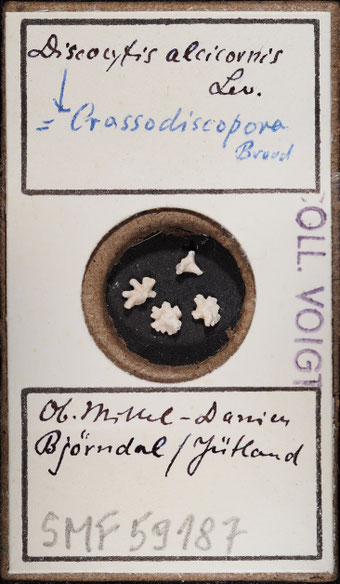 Discocytis alcicornis
Lev.
= Crassodiscopora
Brood
COLL. VOIGT
Ob. Mittel-Danien
Björndal / Jütland
SMF 59187